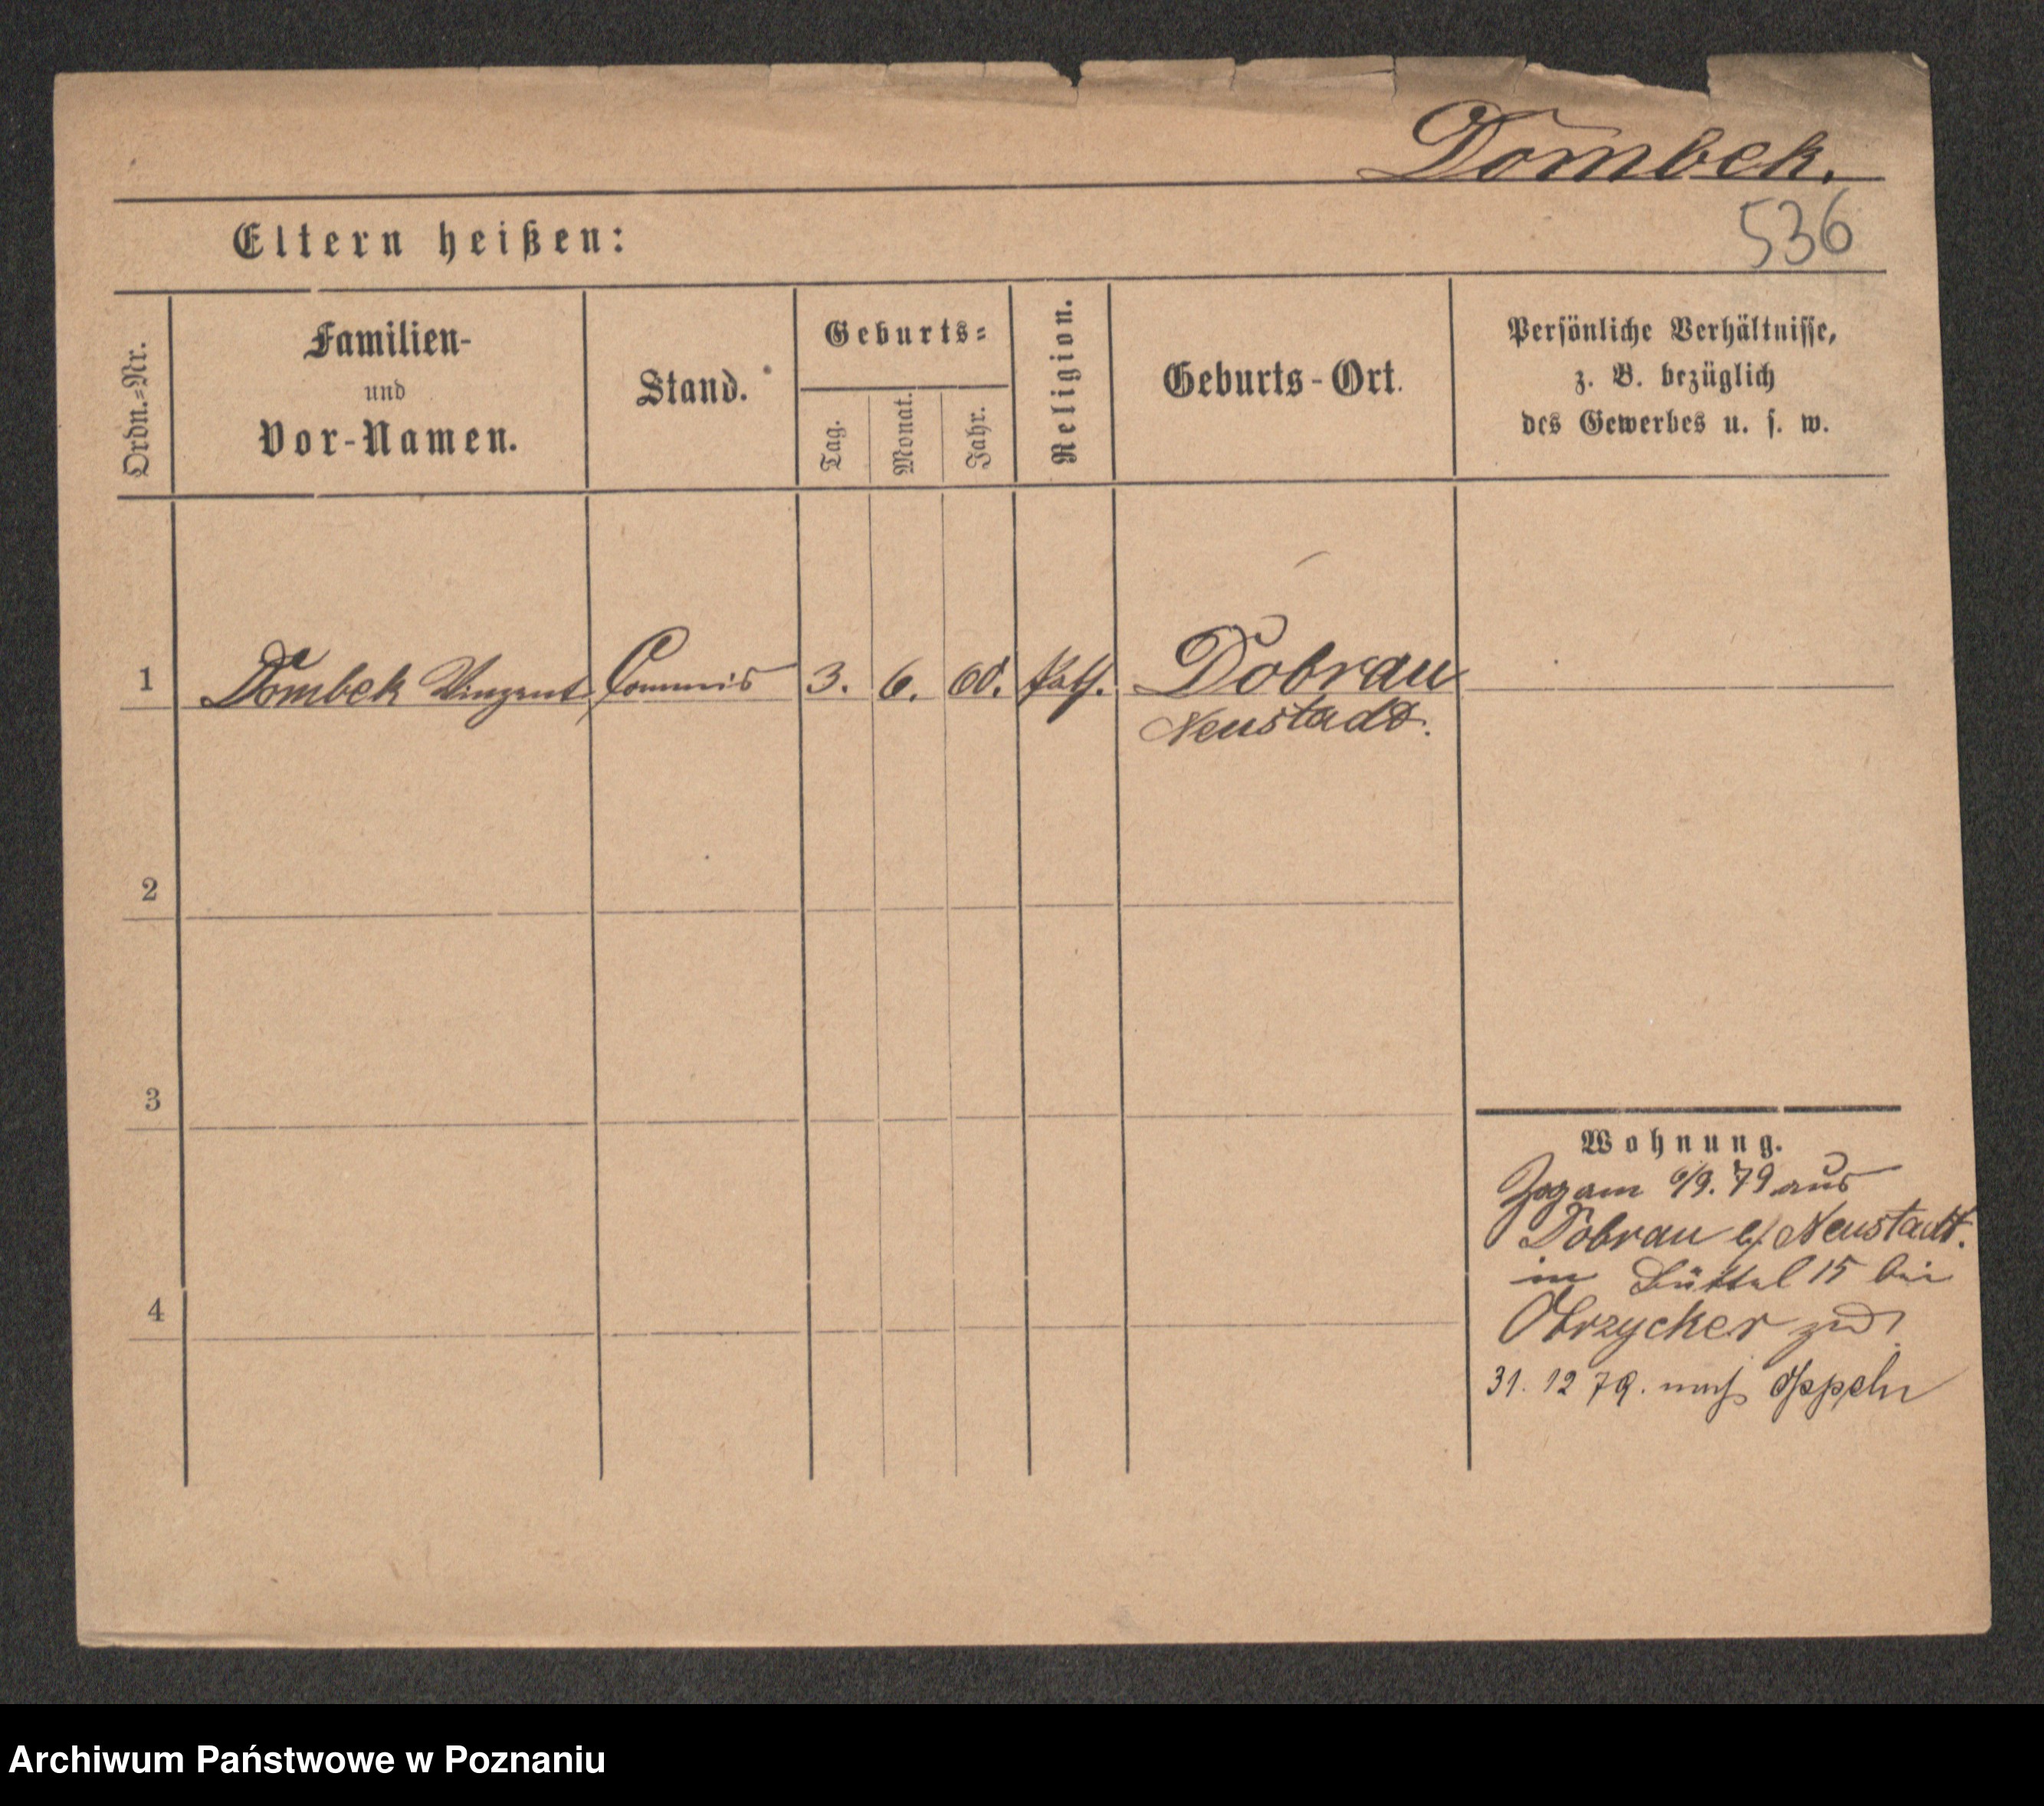 Dombek.
536
Eltern heißen:
Ordn.=Nr.
Familien-
und
Vor-Namen.
Stand.
Geburts=
Tag.
Monat.
Jahr.
Religion.
Geburts-Ort.
Persönliche Verhältnisse,
z. B. bezüglich
des Gewerbes u. s. w.
1 Dombek Vinzent Commis 3. 6. 60. kath. Dobrau
Neustadt.
2
3
4
Wohnung.
Zog am 9. 79 aus
Dobrau b/ Neustadt.
in Büttel 15 bei
Obrzycker zu
31. 12 79. nach Oppeln
Archiwum Państwowe w Poznaniu